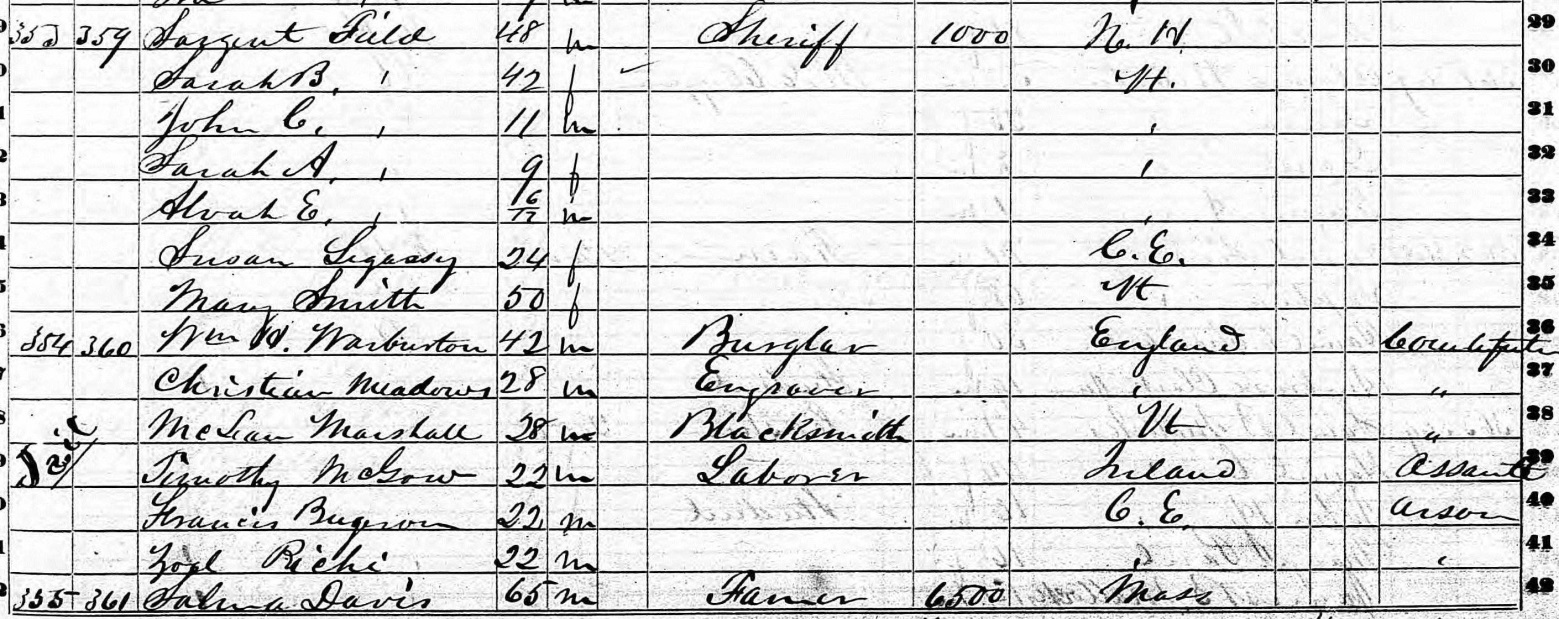 353 359 Sargent Field 48 m Sheriff 1000 N. H. 29
Sarah B. " 42 f Vt. 30
John C. " 11 m " 31
Sarah A. " 9 f " 32
Alvah E. " 6/12 m " 33
Susan Legassy 24 f C. E. 34
Mary Smith 50 f Vt 35
354 360 Wm H. Warburton 42 m Burglar England Counterfeiter 36
Christian Meadows 28 m Engraver " " 37
McLean Marshall 28 m Blacksmith Vt " 38
Jail Timothy McGow 22 m Laborer Ireland Assault 39
Francis 22 m C. E. Arson 40
Richi 22 m " " 41
355 361 Salma Davis 65 m Farmer 6500 Mass 42